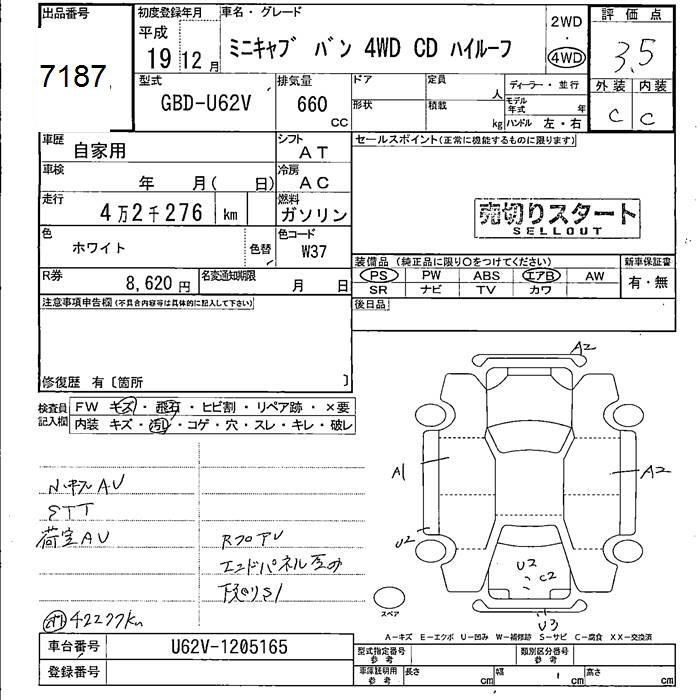 出品番号
7187
初度登録年月
平成
19 12月
車名・グレード
ミニキャブ バン 4WD CD ハイルーフ
2WD
・
4WD
評価点
3.5
外装 内装
C C
型式
GBD-U62V
排気量
660
CC
ドア
形状
定員
人
積載
kg
ディーラー・並行
モデル年式 年
ハンドル 左・右
車歴
自家用
シフト
AT
車検
年 月( 日)
冷房
AC
走行
4万2千276 km
燃料
ガソリン
色
ホワイト
色替
色コード
W37
R券
8,620円
名変通知期限
月 日
セールスポイント(正常に機能するものに限ります)
売切りスタート
SELLOUT
装備品 (純正品に限り○をつけてください)
PS PW ABS エアB AW
SR ナビ TV カワ
新車保証書
有・無
後日品
注意事項申告欄(不具合内容等は具体的に記入して下さい)
修復歴 有〔箇所 〕
検査員記入欄
FW キズ・飛石・ヒビ割・リペア跡・×要
内装 キズ・汚れ・コゲ・穴・スレ・キレ・破レ
AU
STT
荷室AU
RフロアU
エンドパネル
下廻りS1
42277km
A2
A1
A2
U2
U2
C2
U3
スペア
A-キズ E-エクボ U-凹み W-補修跡 S-サビ C-腐食 XX-交換済
車台番号
U62V-1205165
登録番号
型式指定番号
参考
類別区分番号
参考
車庫証明用
参考
長さ cm
幅 1 cm
高さ cm